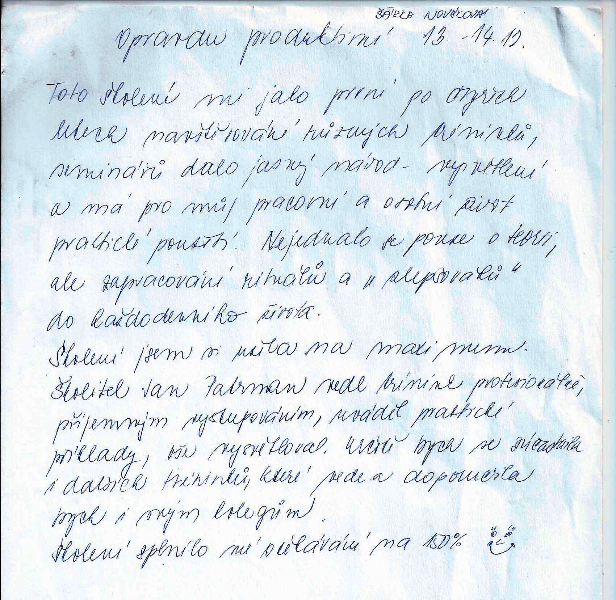 ŠÁRKA NOVÁKOVÁ
Opravdu produktivní 13 - 14. 12.
Toto školení mi jako první po čtyřech
letech navštěvování různých tréninků,
seminářů dalo jasný návod - vysvětlení
a má pro můj pracovní a osobní život
praktické použití. Nejednalo se pouze o teorii,
ale zapracování rituálů a "zlepšováků"
do každodenního života.
Školení jsem si užila na maximum.
Školitel Jan vedl trénink profesionálně,
příjemným vystupováním, uváděl praktické
příklady, vše vysvětloval. Určitě bych se zúčastnila
i dalších tréninků, které vede a doporučila
bych i svým kolegům.
Školení splnilo mé očekávání na 150%